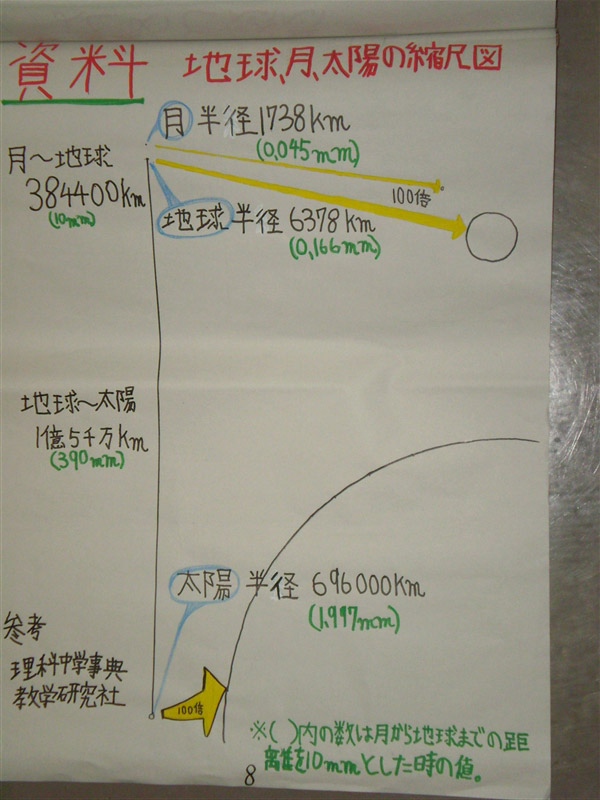 資料 地球、月、太陽の縮尺図
月 半径1738km
(0,045mm)
月〜地球
384400km
(10mm)
100倍
地球 半径6378km
(0,166mm)
地球〜太陽
1億5千万km
(390mm)
太陽 半径 696000km
(1,997mm)
参考
理科中学事典
教学研究社
100倍
※( )内の数は月から地球までの距
離を10mmとした時の値。
8